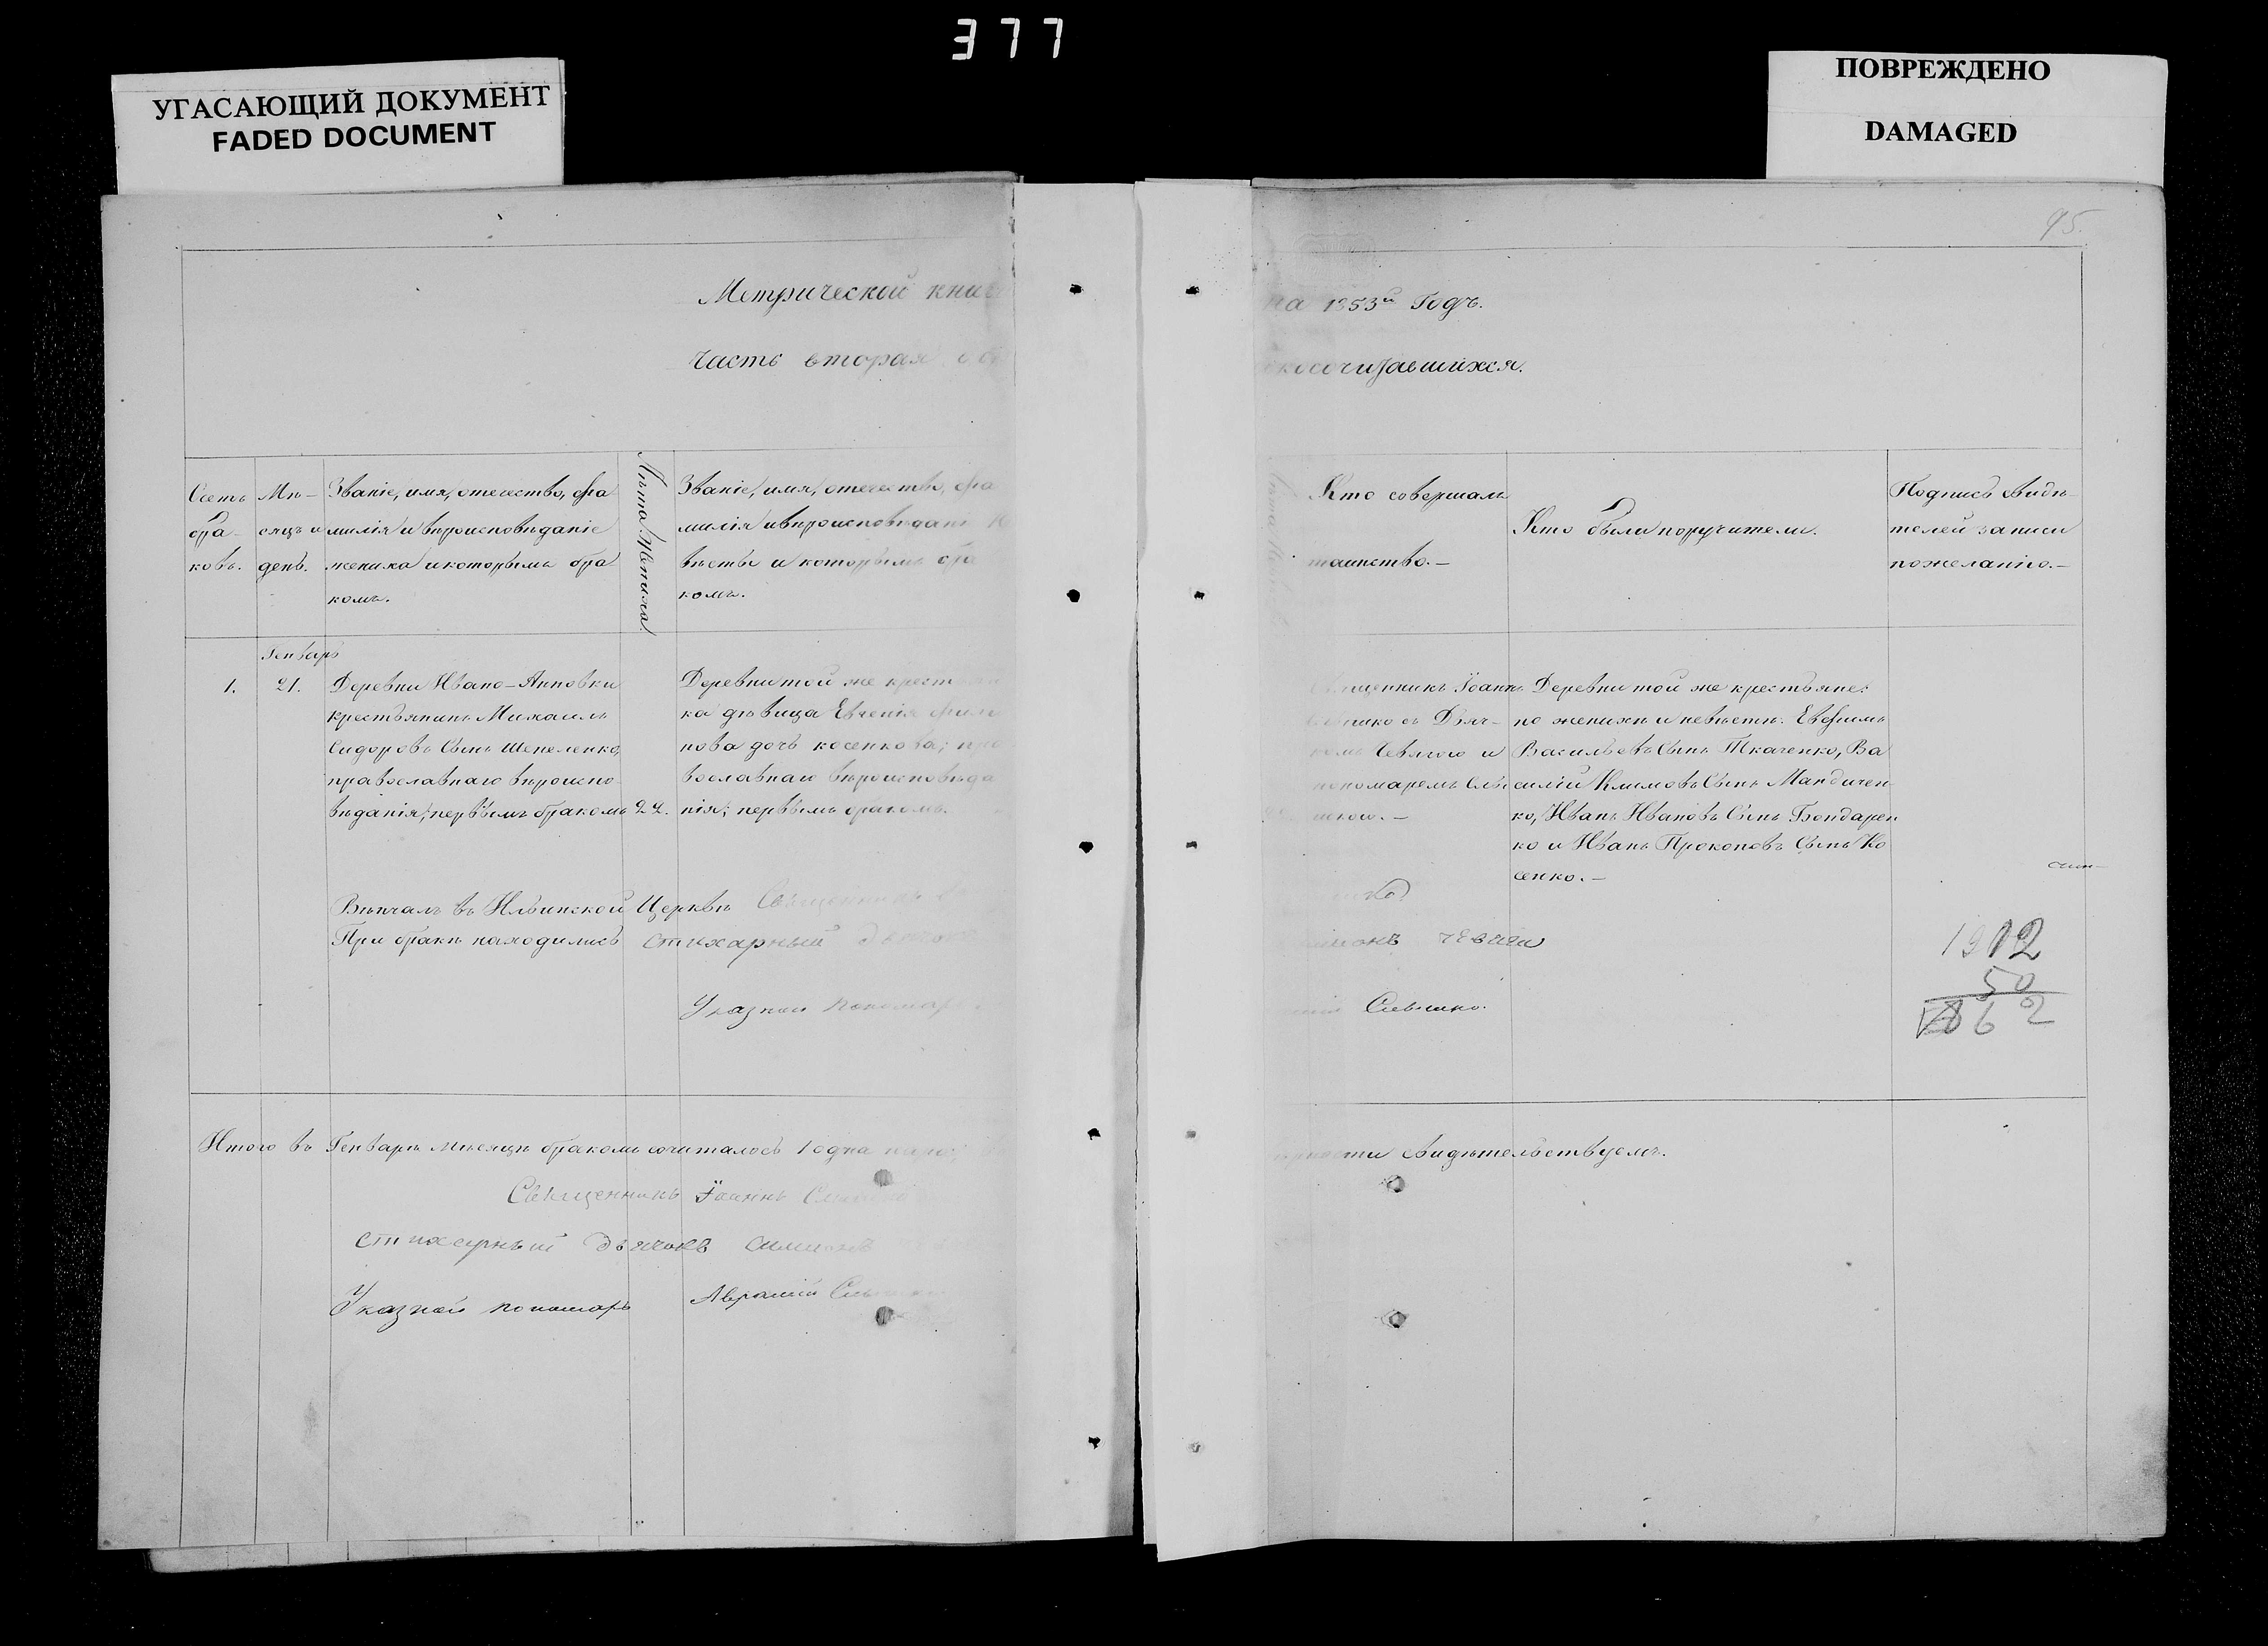 377
УГАСАЮЩИЙ ДОКУМЕНТ
FADED DOCUMENT
ПОВРЕЖДЕНО
DAMAGED
95.
Метрической книг
на 1853й Годъ.
Часть вторая о
косочитавшихся.
Счетъ
бра-
ковъ.
Мѣ-
сяцъ и
день.
Званіе, имя, отечество, фа
милія и вѣроисповѣданіе
жениха и которымъ бра
комъ.
Лѣта жениха.
Званіе, имя, отечество, фа
милія и вѣроисповѣдані
вѣсты и которымъ бра
комъ.
Кто совершалъ
таинство.—
Кто были поручители.
Подпись свидѣ-
телей записи
по желанію.—
Генварь
1.
21.
Деревни Ивано-Анновки
крестьянинъ Михаилъ
Сидоровъ Сынъ Шепеленко,
православнаго вѣроиспо-
вѣданія; первымъ бракомъ
22.
Деревни той же крест
ка дѣвица Евгенія Фили
пова дочь Косенкова; пра
вославнаго вѣроисповѣда
нія; первымъ бракомъ.
Священникъ Іоаннъ
съ Дьяч-
комъ Чевягою и
пономаремъ
Деревни той же крестьяне:
по женихѣ и невѣстѣ: Евфимъ
Васильевъ Сынъ Ткаченко, Ва
силій Климовъ Сынъ Мандичен-
ко, Иванъ Ивановъ Сынъ Бондарен
ко и Иванъ Прокоповъ Сынъ Ко
сенко.—
Вѣнчалъ въ Ильинской Церкви Священникъ
При бракѣ находились стихарный дьячокъ
Указной пономарь
1912
50
62
Итого въ Генварѣ мѣсяцѣ бракомъ сочиталось 1 одна пара
свидѣтельствуемъ.
Священникъ Іоаннъ
стихарный дьячокъ симеонъ
Указной пономарь Аврамій